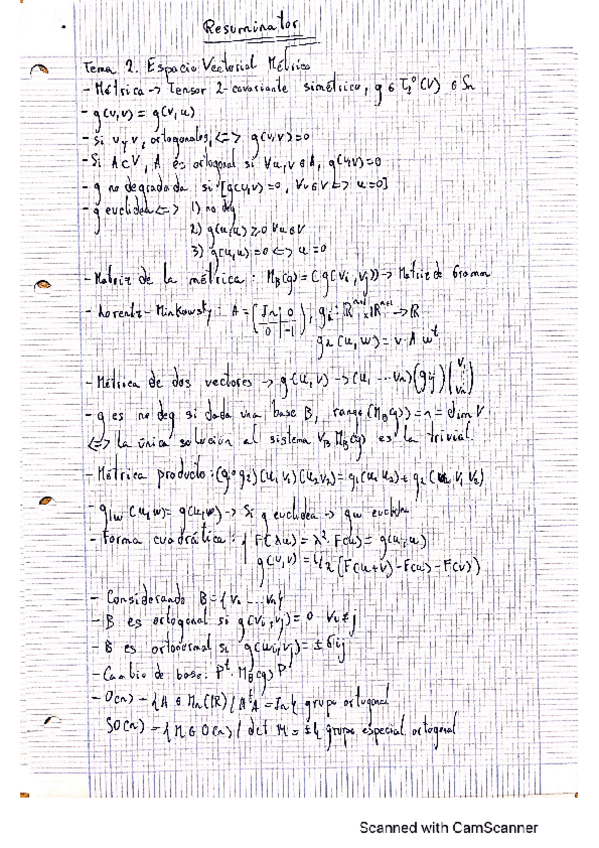 Resuminator
Tema 2. Espacio Vectorial Métrico
- Métrica -> Tensor 2-covariante simétrico, g ∈ T₂⁰(V) ∈ Sn
- g(u,v) = g(v,u)
- Si u y v, ortogonales, <=> g(u,v)=0
- Si A⊂V, A es ortogonal si ∀u,v ∈ A, g(u,v)=0
- g no degradada si [g(u,v)=0, ∀v∈V <=> u=0]
- g euclidea <=> 1) no deg
2) g(u,u) ≥0 ∀u∈V
3) g(u,u)=0 <=> u=0
- Matriz de la métrica : M_B(g) = (g(vi, vj)) -> Matriz de Gramm
- Lorentz-Minkowsky : A = (In 0 / 0 -1), g_L : ℝⁿ⁺¹ x ℝⁿ⁺¹ -> ℝ
g_L(u,w) = v·A·wᵗ
- Métrica de dos vectores -> g(u,v) -> (u₁ ... un)(gij)(v₁ ... vn)
- g es no deg si dada una base B, rango(M_B(g)) = n = dim V
<=> la única solución al sistema v_B M_B(g) es la trivial.
- Métrica producto : (g₁ g₂)(u₁ v₁)(u₂ v₂) = g₁(u₁ u₂) + g₂(v₁ v₂)
- g|w (u,w) = g(u,w) -> Si g euclidea -> g|w euclidea
- Forma cuadrática : { F(λu) = λ²·F(u) = g(u,u)
g(u,v) = 1/2 (F(u+v) - F(u) - F(v))
- Considerando B = {v₁ ... vn}
- B es ortogonal si g(vi,vj) = 0 ∀i≠j
- B es ortonormal si g(vi,vj) = ± δij
- Cambio de base: Pᵗ · M_B(g) P
- O(n) = {A ∈ Mn(ℝ) / Aᵗ A = In} grupo ortogonal
SO(n) = {M ∈ O(n) / det M = ±1} grupo especial ortogonal
Scanned with CamScanner